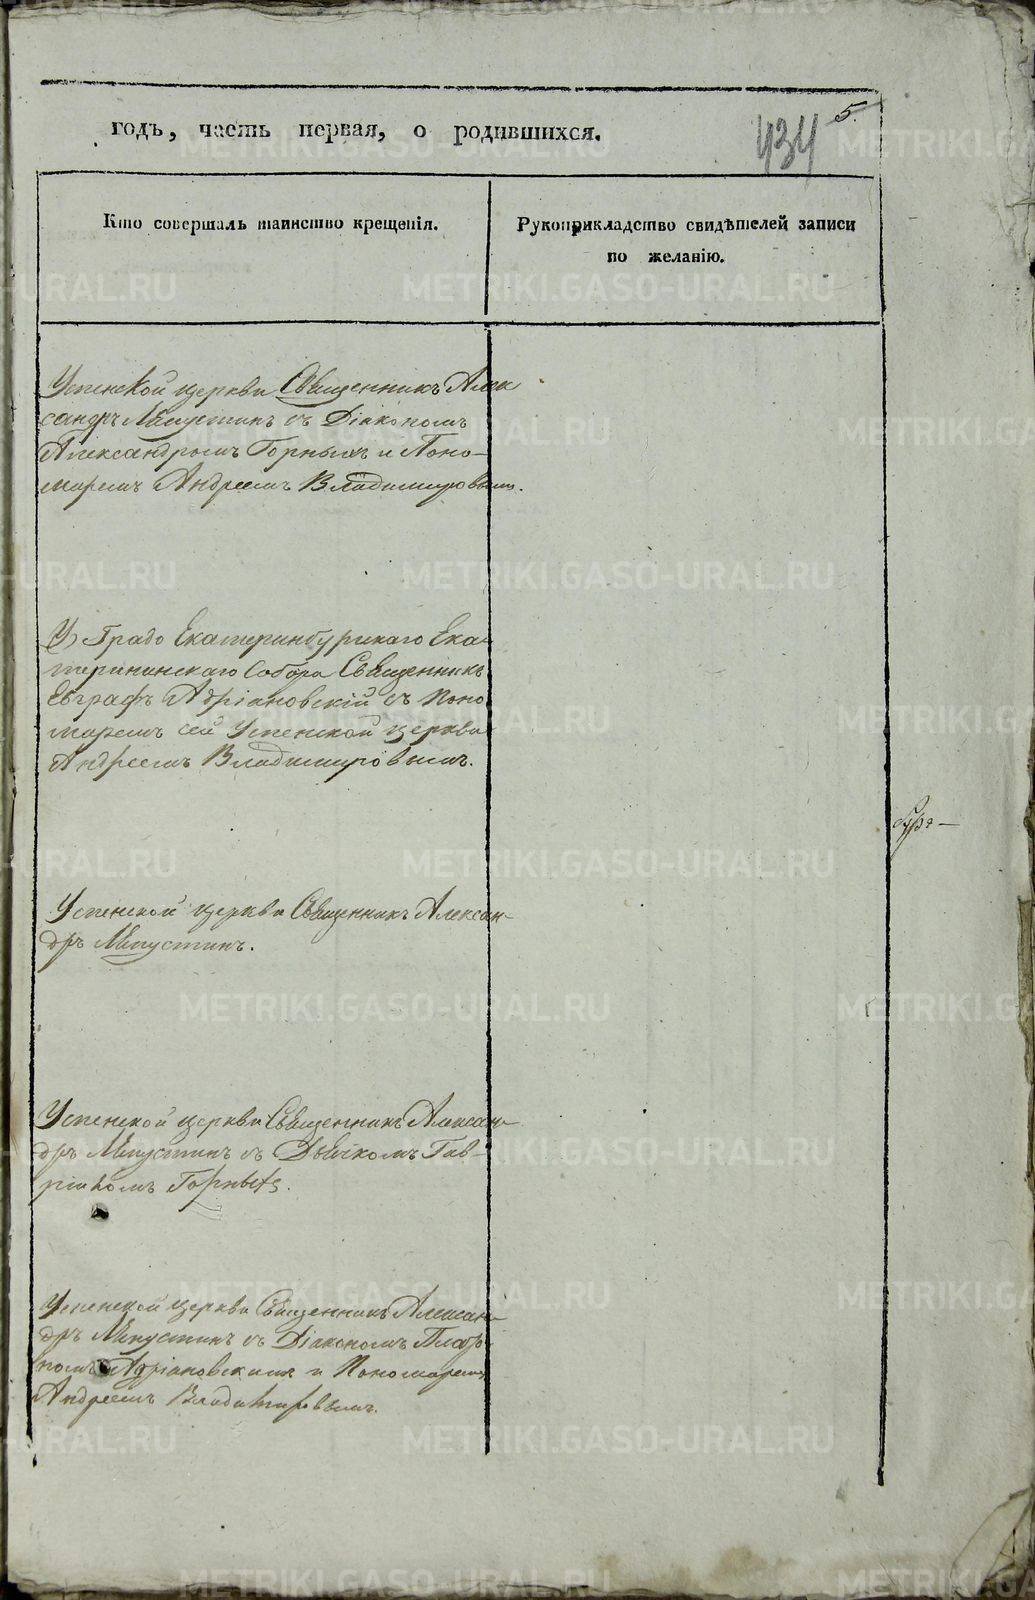 годъ, часть первая, о родившихся.
434
5.
Кто совершалъ таинство крещенія.
Рукоприкладство свидѣтелей записи
по желанію.
Успенской церкви Священникъ Алек
сандръ с Діакономъ
Александромъ Горныхъ и Поно-
маремъ Андреемъ Владимировымъ.
Градо Екатеринбургскаго Ека-
терининскаго Собора Священникъ
Евграфъ Адріановскій съ Поно
маремъ сей Успенской церкви
Андреемъ Владимировымъ.
Успенской церкви Священникъ Алексан-
дръ
Успенской церкви Священникъ Алексан-
дръ съ Дьячкомъ Гав-
Горныхъ.
Успенской церкви Священникъ Алексан-
дръ съ Діакономъ
Адріановскимъ и Пономаремъ
Андреемъ Владимировымъ.
METRIKI.GASO-URAL.RU